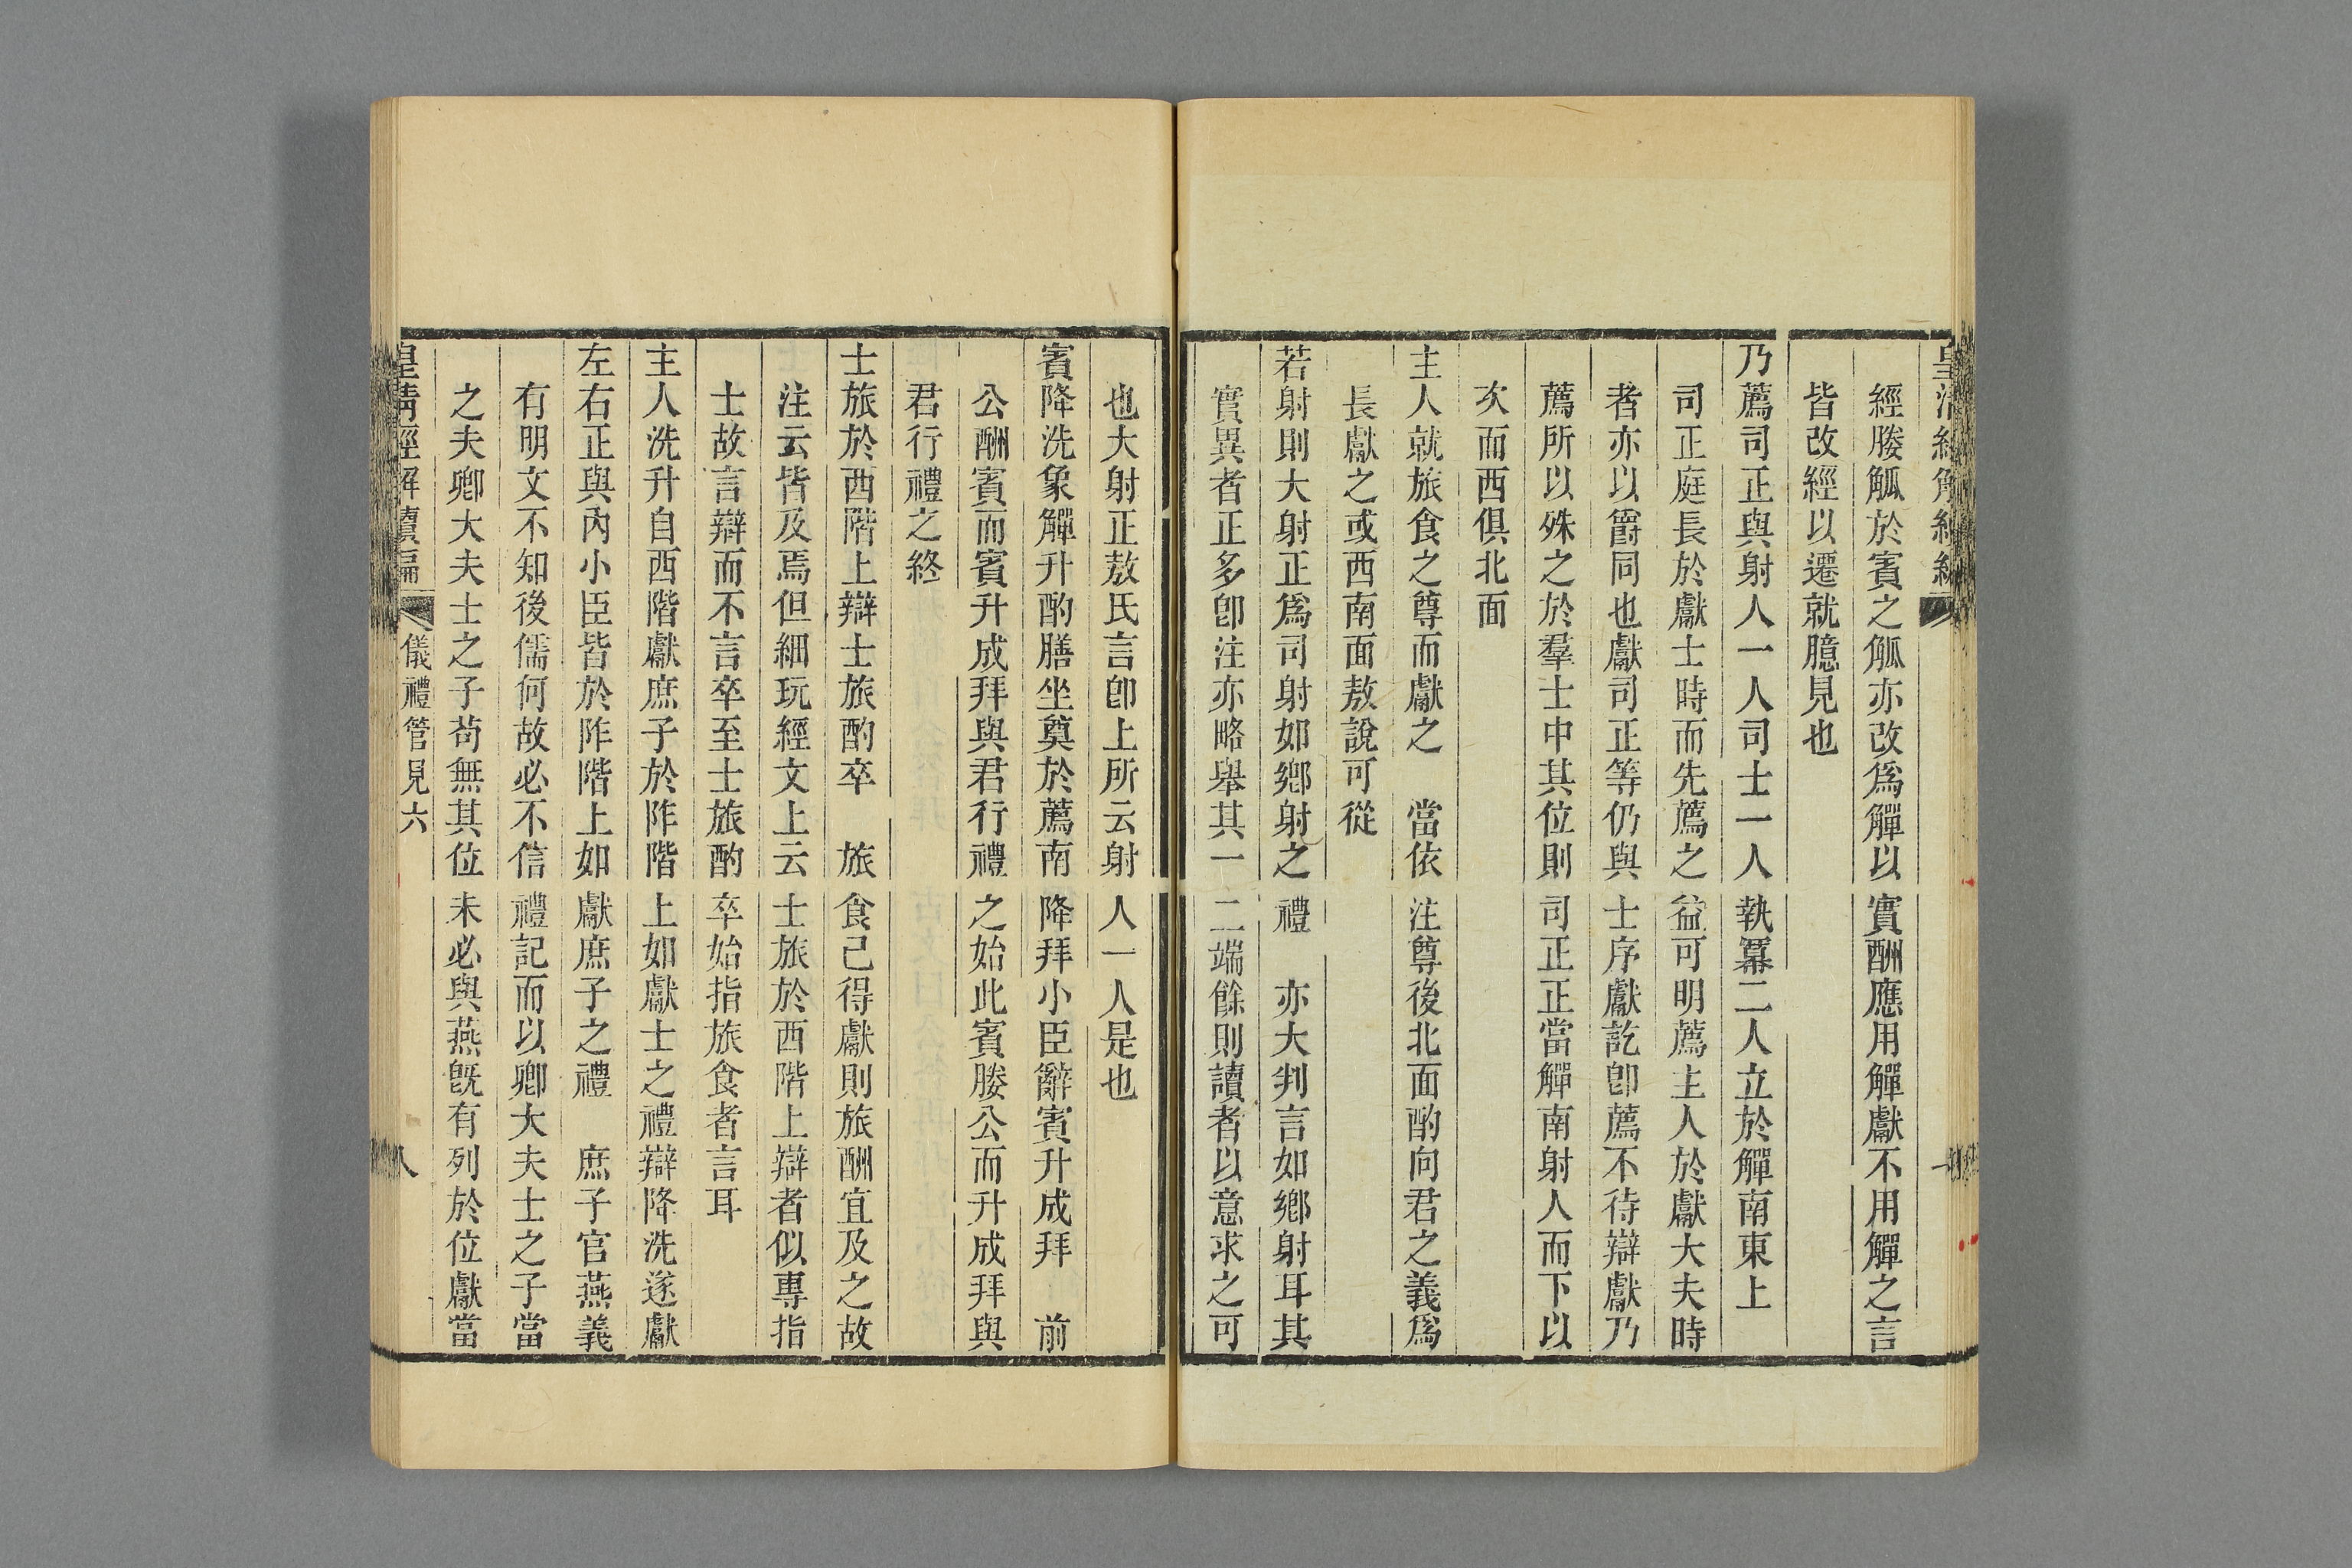 經媵觚於賓之觚亦改爲觶以實酬應用觶獻不用觶之言
皆改經以遷就臆見也
乃薦司正與射人一人司士一人執冪二人立於觶南東上
司正庭長於獻士時而先薦之益可明薦主人於獻大夫時
者亦以爵同也獻司正等仍與士序獻訖卽薦不待辯獻乃
薦所以殊之於羣士中其位則司正正當觶南射人而下以
次而西俱北面
主人就旅食之尊而獻之　當依注尊後北面酌向君之義爲
長獻之或西南面敖說可從
若射則大射正爲司射如鄕射之禮　亦大判言如鄕射耳其
實異者正多卽注亦略舉其一二端餘則讀者以意求之可
也大射正敖氏言卽上所云射人一人是也
賓降洗象觶升酌膳坐奠於薦南降拜小臣辭賓升成拜　前
公酬賓而賓升成拜與君行禮之始此賓媵公而升成拜與
君行禮之終
士旅於西階上辯士旅酌卒　旅食已得獻則旅酬宜及之故
注云皆及焉但細玩經文上云士旅於西階上辯者似專指
士故言辯而不言卒至士旅酌卒始指旅食者言耳
主人洗升自西階獻庶子於阼階上如獻士之禮辯降洗遂獻
左右正與內小臣皆於阼階上如獻庶子之禮　庶子官燕義
有明文不知後儒何故必不信禮記而以卿大夫士之子當
之夫卿大夫士之子苟無其位未必與燕旣有列於位獻當
皇淸經解續編　儀禮管見六　八